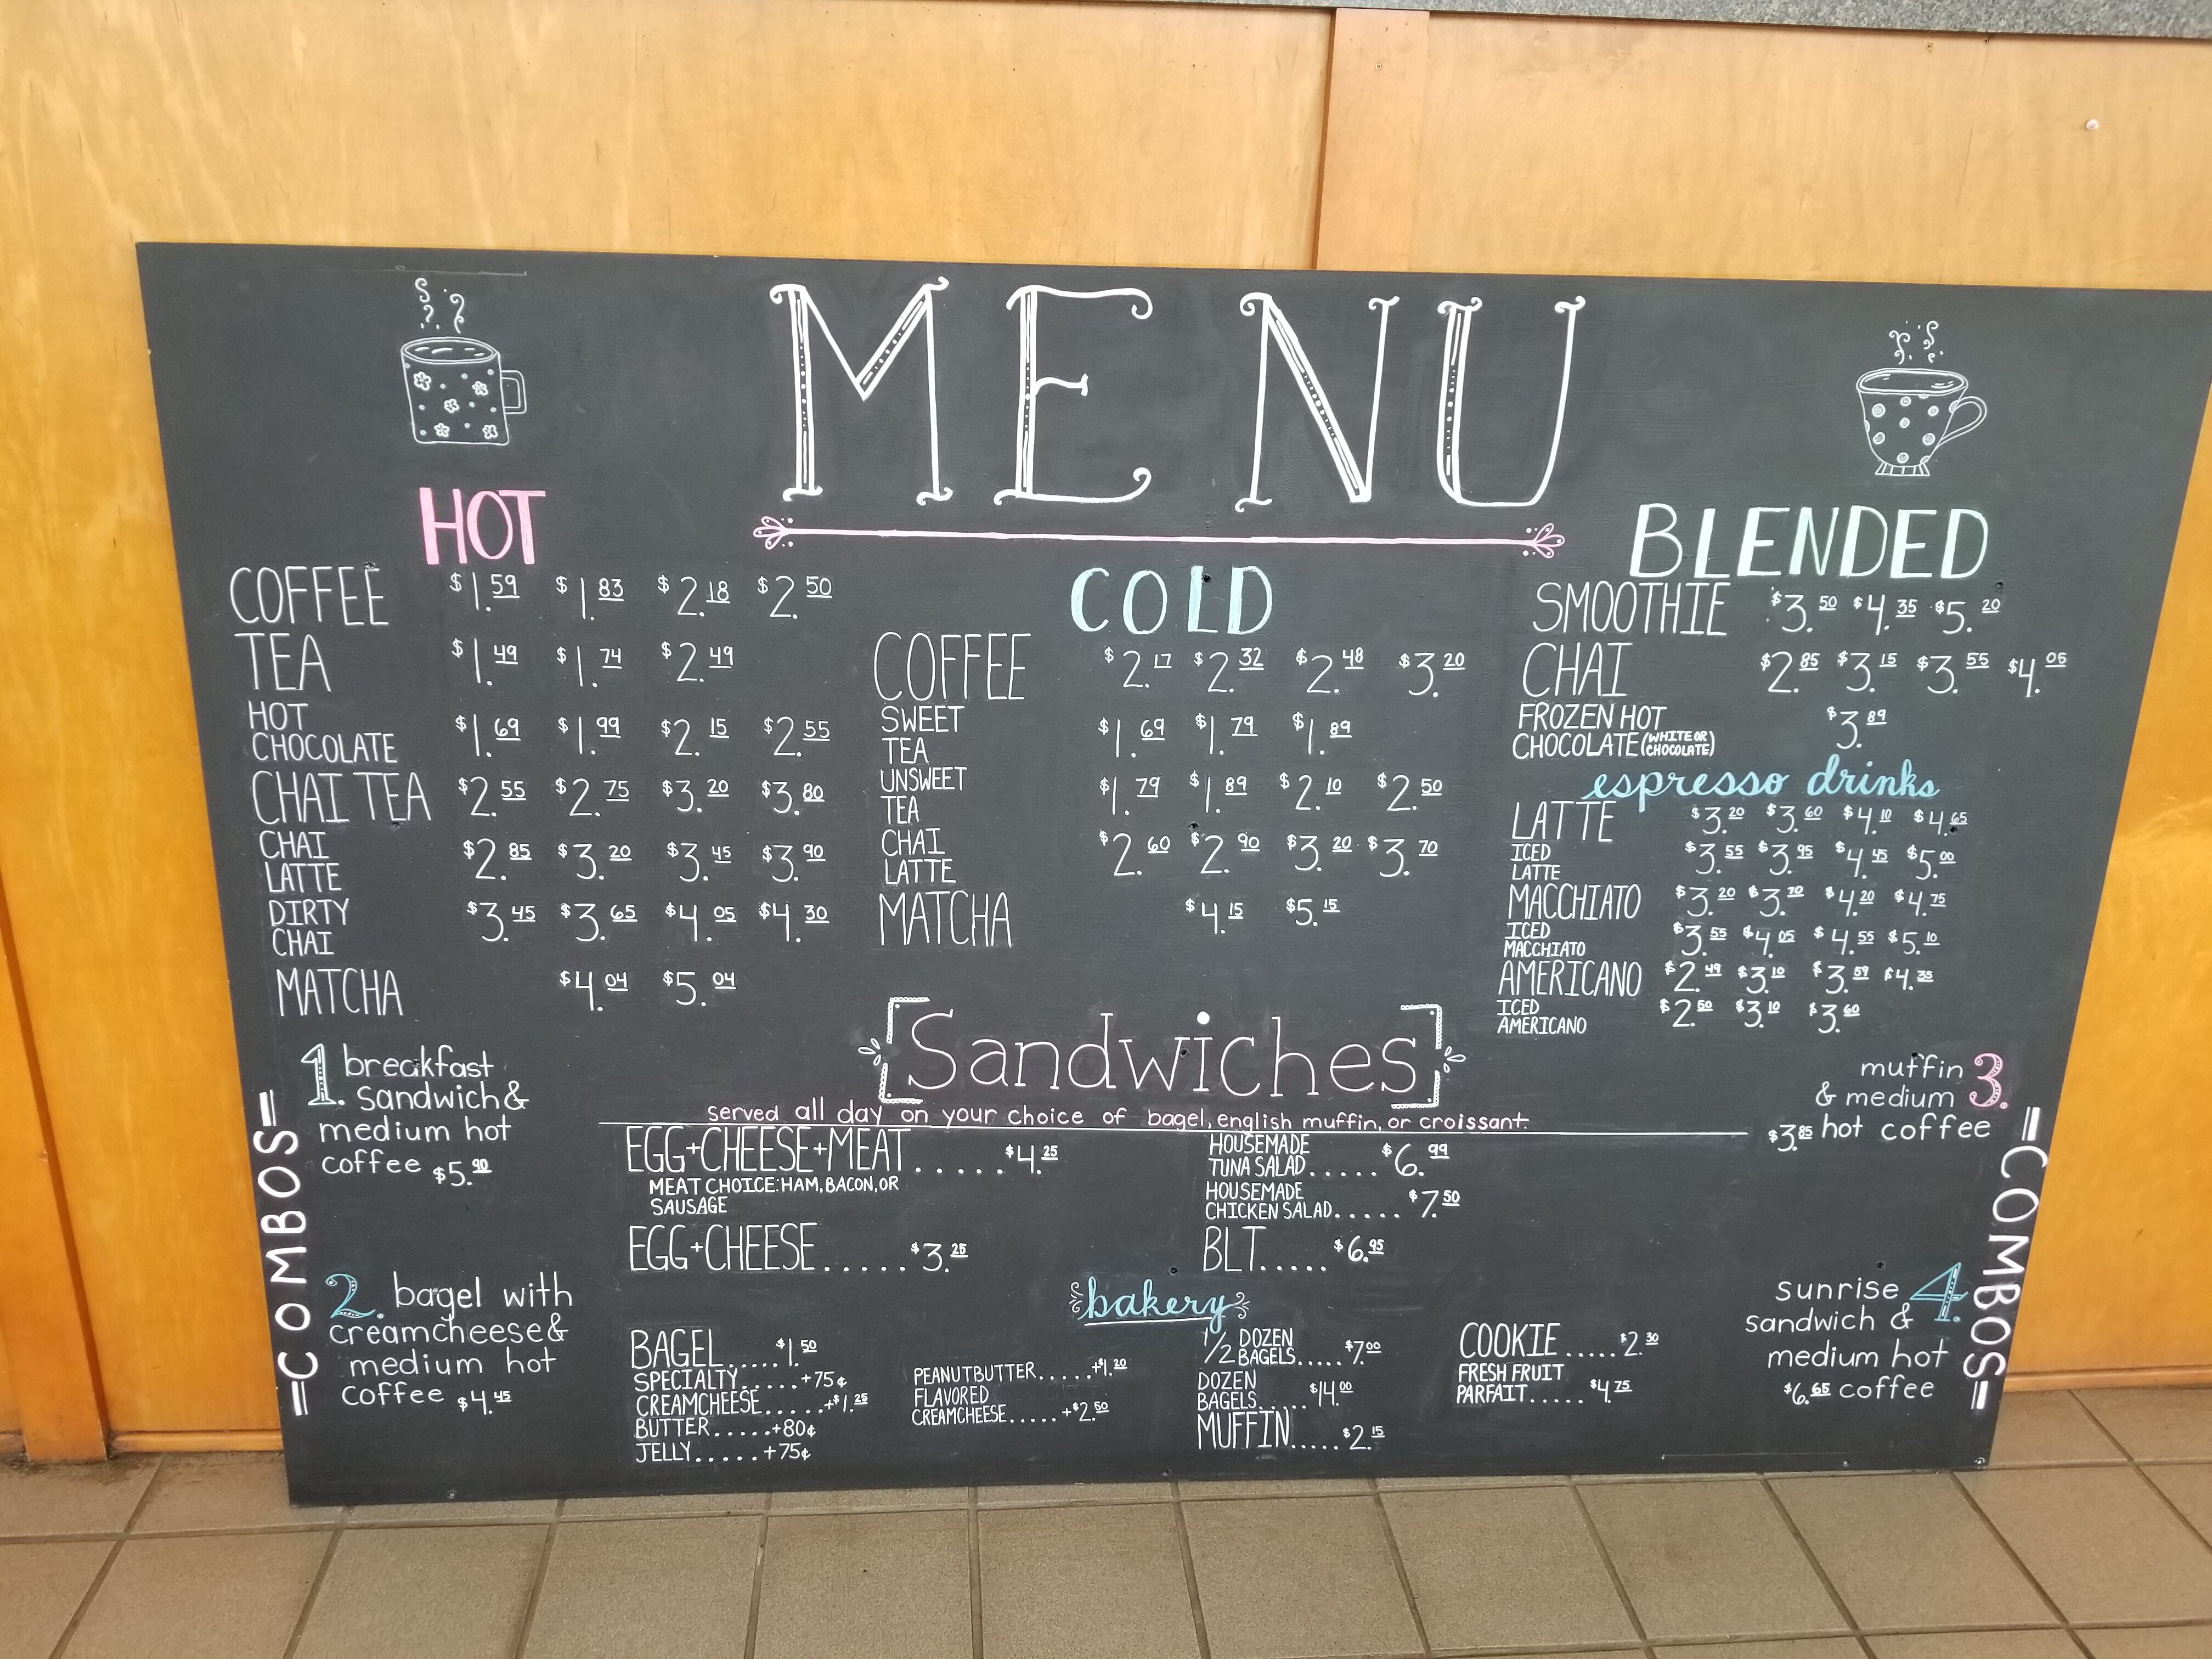 MENU
HOT
COFFEE $1.59 $1.83 $2.18 $2.50
TEA $1.49 $1.74 $2.49
HOT
CHOCOLATE $1.69 $1.99 $2.15 $2.55
CHAI TEA $2.55 $2.75 $3.20 $3.80
CHAI
LATTE $2.85 $3.20 $3.45 $3.90
DIRTY
CHAI $3.45 $3.65 $4.05 $4.30
MATCHA $4.04 $5.04
COLD
COFFEE $2.17 $2.32 $2.48 $3.20
SWEET
TEA $1.69 $1.79 $1.89
UNSWEET
TEA $1.79 $1.89 $2.10 $2.50
CHAI
LATTE $2.60 $2.90 $3.20 $3.70
MATCHA $4.15 $5.15
BLENDED
SMOOTHIE $3.50 $4.35 $5.20
CHAI $2.85 $3.15 $3.55 $4.05
FROZEN HOT
CHOCOLATE (WHITE OR CHOCOLATE) $3.89
espresso drinks
LATTE $3.20 $3.60 $4.10 $4.65
ICED
LATTE $3.55 $3.95 $4.45 $5.00
MACCHIATO $3.20 $3.70 $4.20 $4.75
ICED
MACCHIATO $3.55 $4.05 $4.55 $5.10
AMERICANO $2.49 $3.10 $3.59 $4.35
ICED
AMERICANO $2.50 $3.10 $3.60
=COMBOS=
1. breakfast
sandwich &
medium hot
coffee $5.90
2. bagel with
creamcheese &
medium hot
coffee $4.45
Sandwiches
served all day on your choice of bagel, english muffin, or croissant.
EGG+CHEESE+MEAT.....$4.25
MEAT CHOICE: HAM, BACON, OR
SAUSAGE
EGG+CHEESE.....$3.25
HOUSEMADE
TUNA SALAD.....$6.99
HOUSEMADE
CHICKEN SALAD.....$7.50
BLT.....$6.95
bakery
BAGEL.....$1.50
SPECIALTY.....+75¢
CREAMCHEESE.....+$1.25
BUTTER.....+80¢
JELLY.....+75¢
PEANUTBUTTER.....+$1.20
FLAVORED
CREAMCHEESE.....+$2.50
1/2 DOZEN
BAGELS.....$7.00
DOZEN
BAGELS.....$14.00
MUFFIN.....$2.15
COOKIE.....$2.30
FRESH FRUIT
PARFAIT.....$4.75
=COMBOS=
muffin 3.
& medium
$3.85 hot coffee
sunrise 4.
sandwich &
medium hot
$6.65 coffee